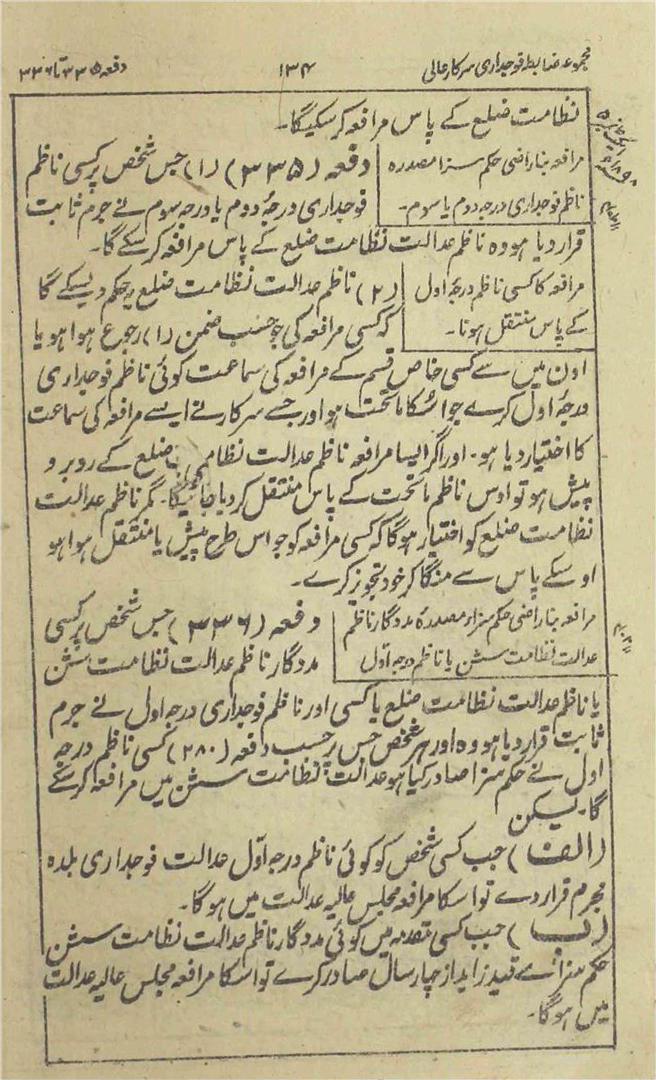 مجموعہ ضابطہ فوجداری سرکار عالی
۱۳۴
دفعہ ۳۳۵ تا ۳۳۶
نظامت ضلع کے پاس مرافعہ کرسکیگا۔
مرافعہ بناراضی حکم سزا مصدرہ
ناظم فوجداری درجہ دوم یا سوم۔
دفعہ (۳۳۵) (۱) جس شخص پر کسی ناظم
فوجداری درجۂ دوم یا درجہ سوم نے جرم ثابت
قرار دیا ہو وہ ناظم عدالت نظامت ضلع کے پاس مرافعہ کرسکے گا۔
مرافعہ کا کسی ناظم درجۂ اول
کے پاس منتقل ہونا۔
(۲) ناظم عدالت نظامت ضلع یہ حکم دیسکے گا
کہ کسی مرافعہ کی جو حسب ضمن (۱) رجوع ہوا ہو یا
اون میں سے کسی خاص قسم کے مرافعہ کی سماعت کوئی ناظم فوجداری
درجۂ اول کرے جو اسکا ماتحت ہو اور جسے سرکار نے ایسے مرافعہ کی سماعت
کا اختیار دیا ہو۔ اور اگر ایسا مرافعہ ناظم عدالت نظامت ضلع کے روبرو
پیش ہو تو اوس ناظم ماتحت کے پاس منتقل کردیا جائیگا۔ مگر ناظم عدالت
نظامت ضلع کو اختیار ہوگا کہ کسی مرافعہ کو جو اس طرح پیش یا منتقل ہوا ہو
اوسکے پاس سے منگا کر خود تجویز کرے۔
مرافعہ بناراضی حکم سزاء مصدرہ مددگار ناظم
عدالت نظامت سشن یا ناظم درجہ اول
دفعہ (۳۳۶) جس شخص پر کسی
مددگار ناظم عدالت نظامت سشن
یا ناظم عدالت نظامت ضلع یا کسی اور ناظم فوجداری درجہ اول نے جرم
ثابت قرار دیا ہو وہ اور ہر شخص جس پر حسب دفعہ (۲۸۰) کسی ناظم درجہ
اول نے حکم سزا صادر کیا ہو عدالت نظامت سشن میں مرافعہ کرسکے
گا۔ لیکن
(الف) جب کسی شخص کو کوئی ناظم درجہ اوّل عدالت فوجداری بلدہ
مجرم قرار دے تو اسکا مرافعہ مجلس عالیہ عدالت میں ہوگا۔
(ب) جب کسی مقدمہ میں کوئی مددگار ناظم عدالت نظامت سشن
حکم سزائے قید زاید از چار سال صادر کرے تو اسکا مرافعہ مجلس عالیہ عدالت
میں ہوگا۔